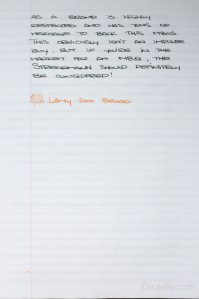 AS A BRAND IS HIGHLY
RESPECTED AND HAS TONS OF
HERITAGE TO BACK THIS THING.
THIS OBVIOUSLY ISN'T AN IMPULSE
BUY. BUT IF YOU'RE IN THE
MARKET FOR AN , THE
SHOULD DEFINITELY
BE CONSIDERED!
LAMY 2000 BROAD